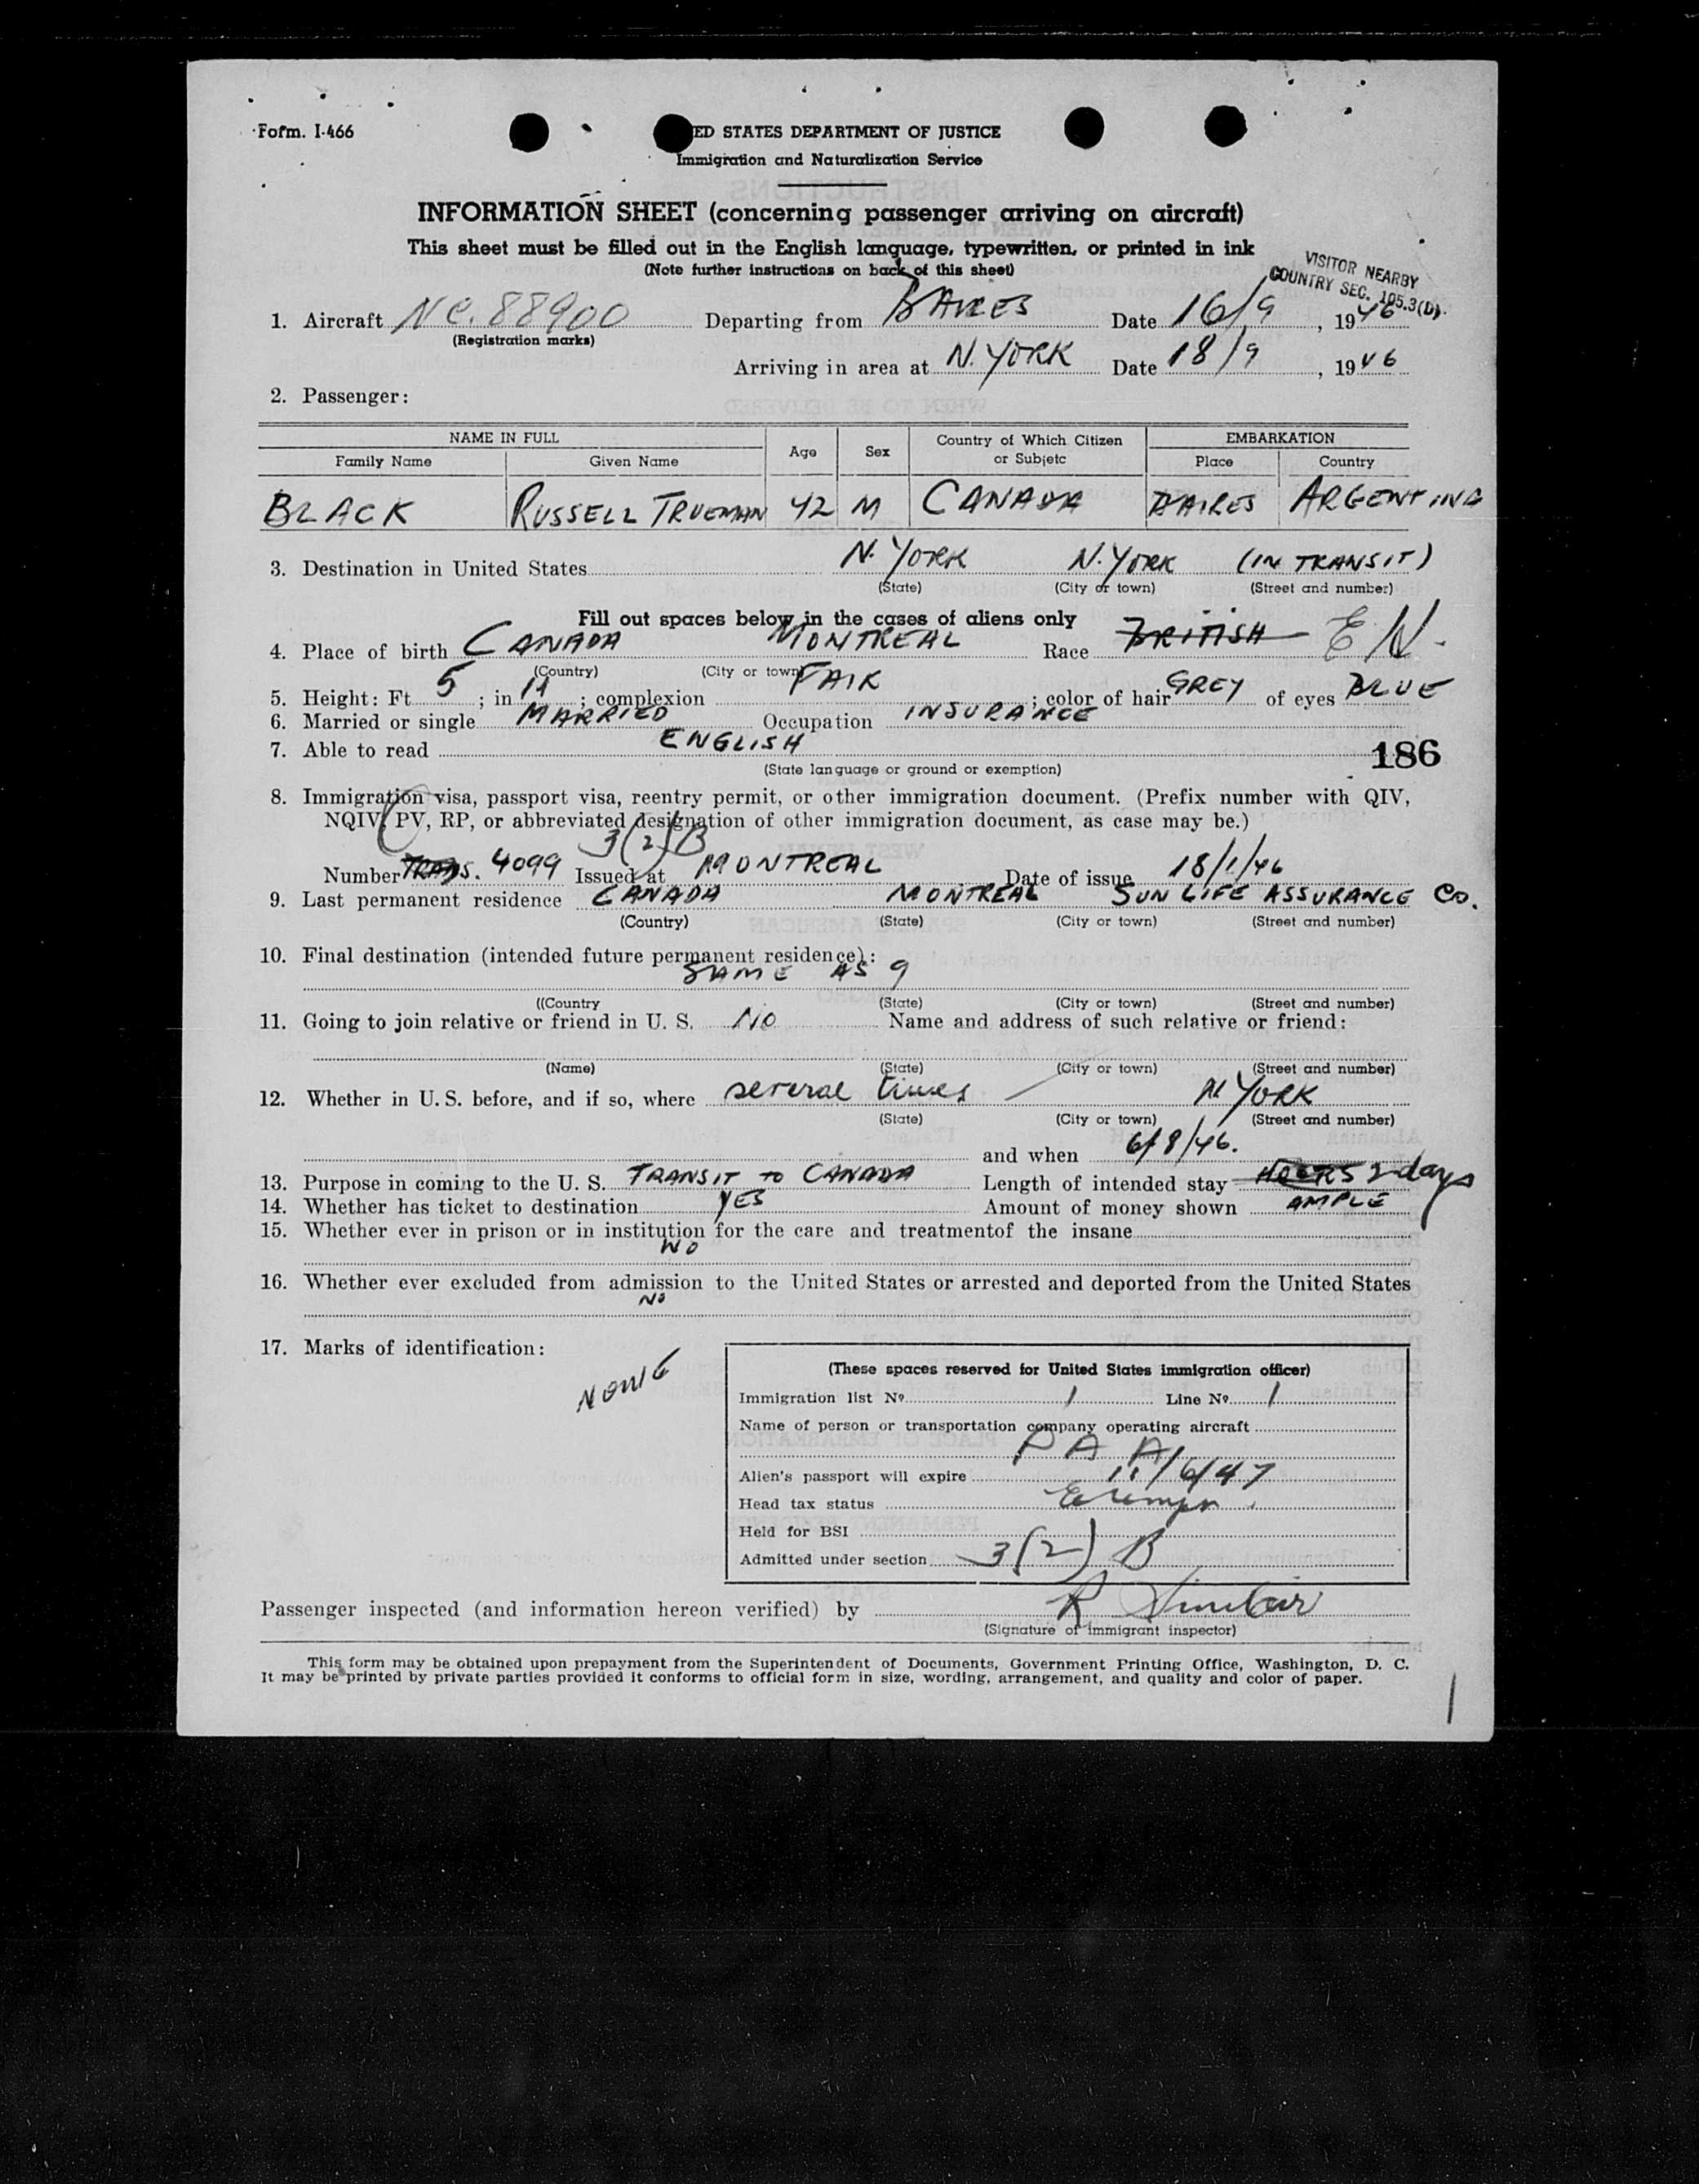 Form. I-466
ED STATES DEPARTMENT OF JUSTICE
Immigration and Naturalization Service
INFORMATION SHEET (concerning passenger arriving on aircraft)
This sheet must be filled out in the English language, typewritten, or printed in ink
(Note further instructions on back of this sheet)
VISITOR NEARBY
COUNTRY SEC. 105.3(D).
1. Aircraft NC. 88900 Departing from BAIRES Date 16/9, 1946
(Registration marks)
Arriving in area at N. YORK Date 18/9, 1946
2. Passenger:
NAME IN FULL Age Sex Country of Which Citizen or Subjetc EMBARKATION
Family Name Given Name Place Country
BLACK RUSSELL TRUEMAN 42 M CANADA BAIRES ARGENTINA
3. Destination in United States N. YORK N. YORK (IN TRANSIT)
(State) (City or town) (Street and number)
Fill out spaces below in the cases of aliens only
4. Place of birth CANADA MONTREAL Race BRITISH EN.
(Country) (City or town)
5. Height: Ft 5; in 11; complexion FAIR; color of hair GREY of eyes BLUE
6. Married or single MARRIED Occupation INSURANCE
7. Able to read ENGLISH
186
(State language or ground or exemption)
8. Immigration visa, passport visa, reentry permit, or other immigration document. (Prefix number with QIV,
NQIV, PV, RP, or abbreviated designation of other immigration document, as case may be.)
3(2)B
Number TRANS. 4099 Issued at MONTREAL Date of issue 18/1/46
9. Last permanent residence CANADA MONTREAL SUN LIFE ASSURANCE CO.
(Country) (State) (City or town) (Street and number)
10. Final destination (intended future permanent residence):
SAME AS 9
((Country (State) (City or town) (Street and number)
11. Going to join relative or friend in U. S. NO Name and address of such relative or friend:
(Name) (State) (City or town) (Street and number)
12. Whether in U. S. before, and if so, where several times N. YORK
(State) (City or town) (Street and number)
and when 6/8/46.
13. Purpose in coming to the U. S. TRANSIT TO CANADA Length of intended stay HOURS 2 days
14. Whether has ticket to destination YES Amount of money shown AMPLE
15. Whether ever in prison or in institution for the care and treatmentof the insane
NO
16. Whether ever excluded from admission to the United States or arrested and deported from the United States
NO
17. Marks of identification:
NONE
(These spaces reserved for United States immigration officer)
Immigration list Nº 1 Line Nº 1
Name of person or transportation company operating aircraft
P A A
Alien's passport will expire 11/6/47
Head tax status Exempt
Held for BSI
Admitted under section 3(2) B
Passenger inspected (and information hereon verified) by R Sinclair
(Signature of immigrant inspector)
This form may be obtained upon prepayment from the Superintendent of Documents, Government Printing Office, Washington, D. C.
It may be printed by private parties provided it conforms to official form in size, wording, arrangement, and quality and color of paper.
1